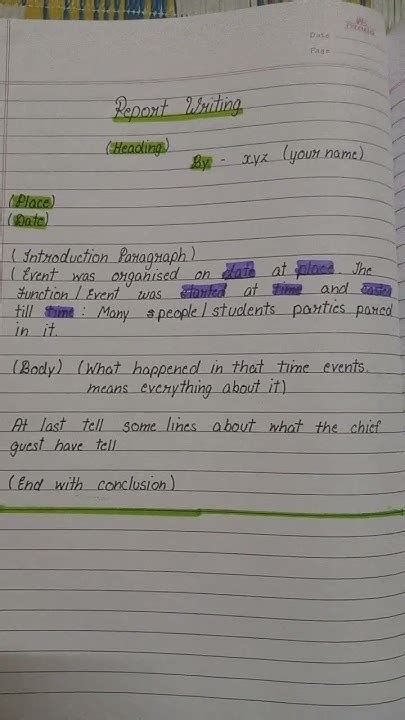 Date
Page
Report Writing
(Heading)
By - xyz (your name)
(Place)
(Date)
(Introduction Paragraph)
(Event was organised on date at place. The
Function / Event was started at time and lasted
till time : Many speople / students parties pared
in it.
(Body) (What happened in that time events.
means everything about it)
At last tell some lines about what the chief
guest have tell
(End with conclusion)